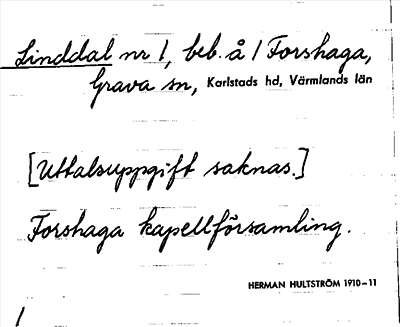 Linddal nr 1, beb. å 1 Forshaga,
Grava sn, Karlstads hd, Värmlands län
[Uttalsuppgift saknas.]
Forshaga kapellförsamling.
HERMAN HULTSTRÖM 1910-11
1